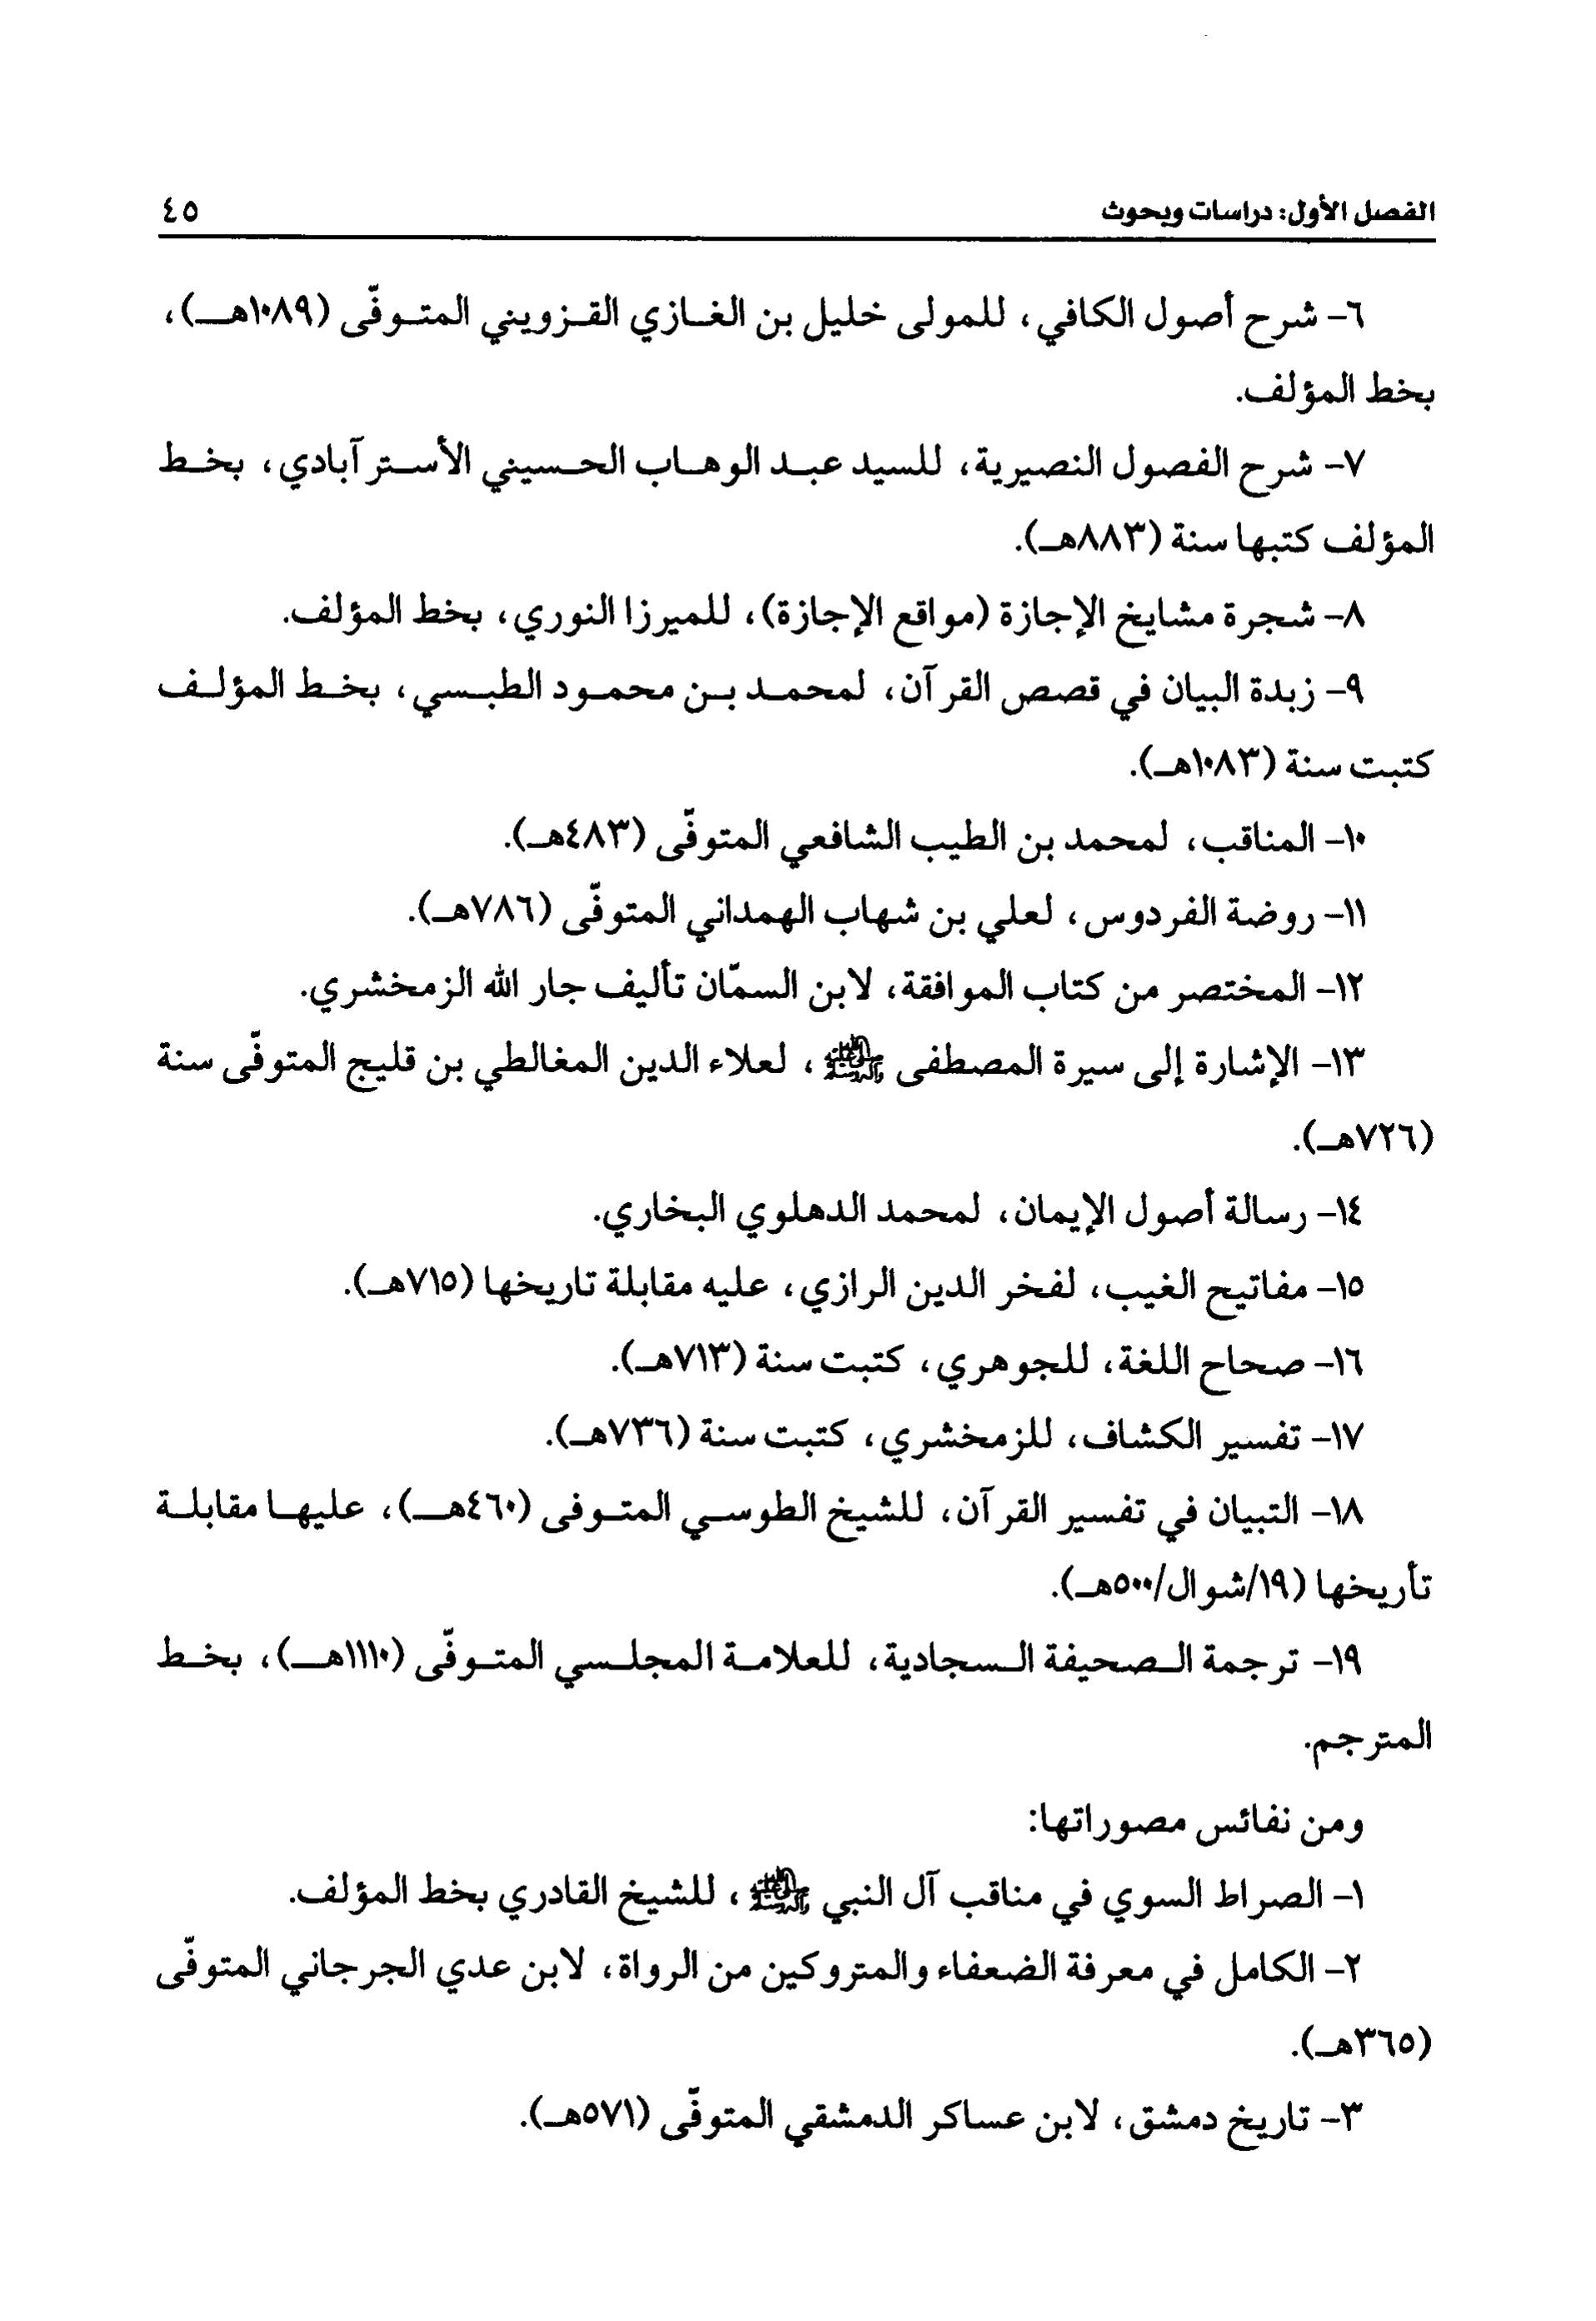 الفصل الأول: دراسات وبحوث ٤٥
٦- شرح أصول الكافي، للمولى خليل بن الغازي القزويني المتوفّى (١٠٨٩هـ)،
بخط المؤلف.
٧- شرح الفصول النصيرية، للسيد عبد الوهاب الحسيني الأسترآبادي، بخط
المؤلف كتبها سنة (٨٨٣هـ).
٨- شجرة مشايخ الإجازة (مواقع الإجازة)، للميرزا النوري، بخط المؤلف.
٩- زبدة البيان في قصص القرآن، لمحمد بن محمود الطبسي، بخط المؤلف
كتبت سنة (١٠٨٣هـ).
١٠- المناقب، لمحمد بن الطيب الشافعي المتوفّى (٤٨٣هـ).
١١- روضة الفردوس، لعلي بن شهاب الهمداني المتوفّى (٧٨٦هـ).
١٢- المختصر من كتاب الموافقة، لابن السمّان تأليف جار الله الزمخشري.
١٣- الإشارة إلى سيرة المصطفى ﷺ، لعلاء الدين المغالطي بن قليج المتوفّى سنة
(٧٢٦هـ).
١٤- رسالة أصول الإيمان، لمحمد الدهلوي البخاري.
١٥- مفاتيح الغيب، لفخر الدين الرازي، عليه مقابلة تاريخها (٧١٥هـ).
١٦- صحاح اللغة، للجوهري، كتبت سنة (٧١٣هـ).
١٧- تفسير الكشاف، للزمخشري، كتبت سنة (٧٣٦هـ).
١٨- التبيان في تفسير القرآن، للشيخ الطوسي المتوفى (٤٦٠هـ)، عليها مقابلة
تأريخها (١٩/شوال/٥٠٠هـ).
١٩- ترجمة الصحيفة السجادية، للعلامة المجلسي المتوفّى (١١١٠هـ)، بخط
المترجم.
ومن نفائس مصوراتها:
١- الصراط السوي في مناقب آل النبي ﷺ، للشيخ القادري بخط المؤلف.
٢- الكامل في معرفة الضعفاء والمتروكين من الرواة، لابن عدي الجرجاني المتوفّى
(٣٦٥هـ).
٣- تاريخ دمشق، لابن عساكر الدمشقي المتوفّى (٥٧١هـ).